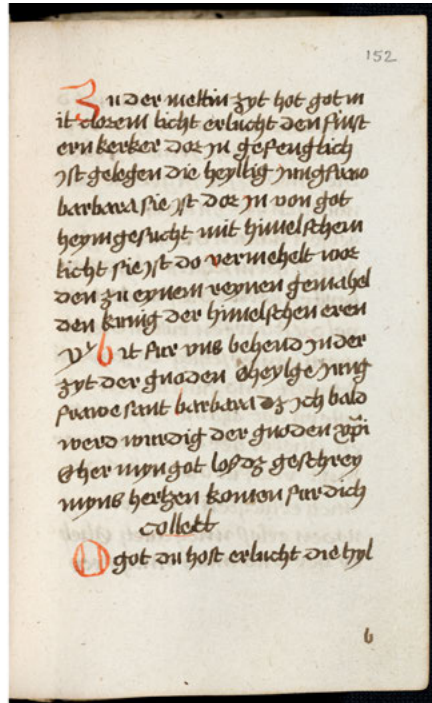 152
Zu der mettin zyt hot got m
it clorem licht erlucht den finst
ern kerker dor jn gefenglich
jst gelegen die heyllig jungfrawo
barbara sie jst dor jn von got
heymgesucht mit himelschem
licht sie jst do vermehelt wor
den zu eynem reynen gemahel
den kunig der himelschen eren
bit fur vns behend jn der
zyt der gnoden O heylge jung
frawe sant barbara dz jch bald
werd wirdig der gnoden xpi
O her myn got losz dz geschrey
myns hertzen komen fur dich
Collett
O got du host erlucht die hyl
b